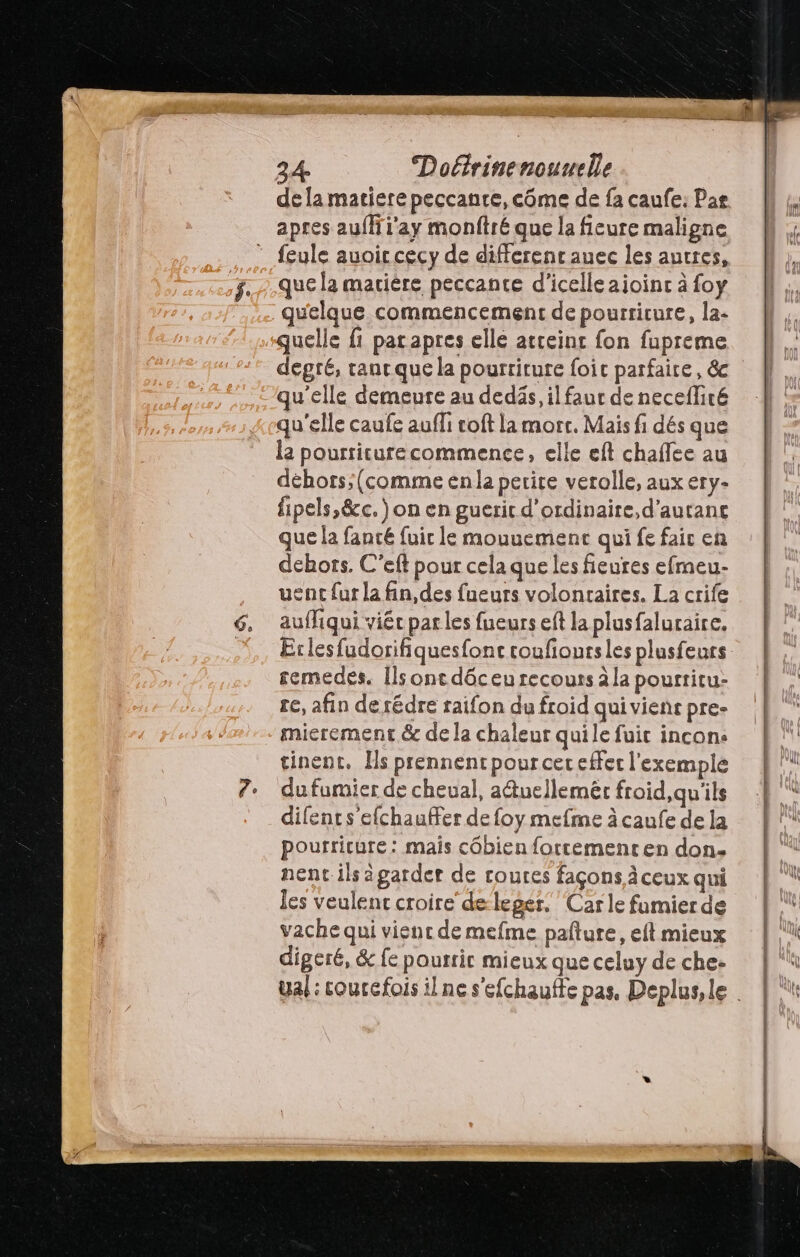 34 Doctrine nouuelle
de la matiere peccante, cõme de sa cause. Par
apres aussi i'ay monstré que la fieure maligne
seule auoit cecy de different auec les autres,
5. que la matiere peccante d'icelle aioint à soy
quelque commencement de pourriture, la-
quelle si par apres elle atteint son supreme
degré, tant que la pourriture soit parfaite, &
qu'elle demeure au dedãs, il faut de necessité
qu'elle cause aussi tost la mort. Mais si dés que
la pourriture commence, elle est chassee au
dehors; (comme en la petite verolle, aux ery-
sipels, &c.) on en guerit d'ordinaire, d'autant
que la santé suit le mouuement qui se fait en
dehors. C'est pour cela que les fieures esmeu-
uent sur la fin, des sueurs volontaires. La crise
6. aussi qui viẽt par les sueurs est la plus salutaire.
Et les sudorifiques sont tousiours les plus seurs
remedes. Ils ont dõc eu recours à la pourritu-
re, afin de rẽdre raison du froid qui vient pre-
mierement & de la chaleur qui le suit incon-
tinent. Ils prennent pour cet effet l'exemple
7. du fumier de cheual, actuellemẽt froid, qu'ils
disent s'eschauffer de soy mesme à cause de la
pourriture: mais cõbien fortement en don-
nent ils à garder de toutes façons à ceux qui
les veulent croire de leger. Car le fumier de
vache qui vient de mesme pasture, est mieux
digeré, & se pourrit mieux que celuy de che-
ual: toutefois il ne s'eschauffe pas. De plus, le